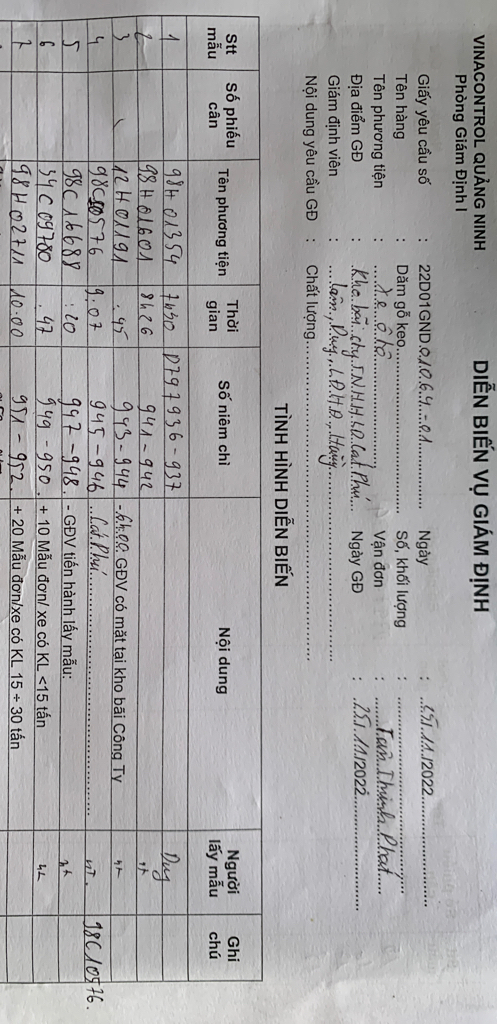 VINACONTROL QUẢNG NINH
Phòng Giám Định I
DIỄN BIẾN VỤ GIÁM ĐỊNH
Giấy yêu cầu số : 22D01GND01064-01 Ngày : 25/11/2022
Tên hàng : Dăm gỗ keo Số, khối lượng :
Tên phương tiện : Xe ô tô Vận đơn : Tân Thịnh Phát
Địa điểm GĐ : Kho bãi cty TNHH LD Cát Phú Ngày GĐ : 25/11/2022
Giám định viên : Lâm, Duy, L.Đ.H.Đ, Hùng
Nội dung yêu cầu GĐ : Chất lượng
TÌNH HÌNH DIỄN BIẾN
Stt mẫu Số phiếu cân Tên phương tiện Thời gian Số niêm chì Nội dung Người lấy mẫu Ghi chú
1 98H01354 7h30 D797936-937 Duy
2 98H01601 8h26 941-942
3 12H01191 :45 943-944 - GĐV có mặt tại kho bãi Công Ty
4 98C10576 9:07 945-946 Cát Phú 98C10576.
5 98C16688 :20 947-948. - GĐV tiến hành lấy mẫu:
6 34C09780 :47 949-950. + 10 Mẫu đơn/ xe có KL <15 tấn
7 98H02711 10:00 951-952. + 20 Mẫu đơn/xe có KL 15 ÷ 30 tấn